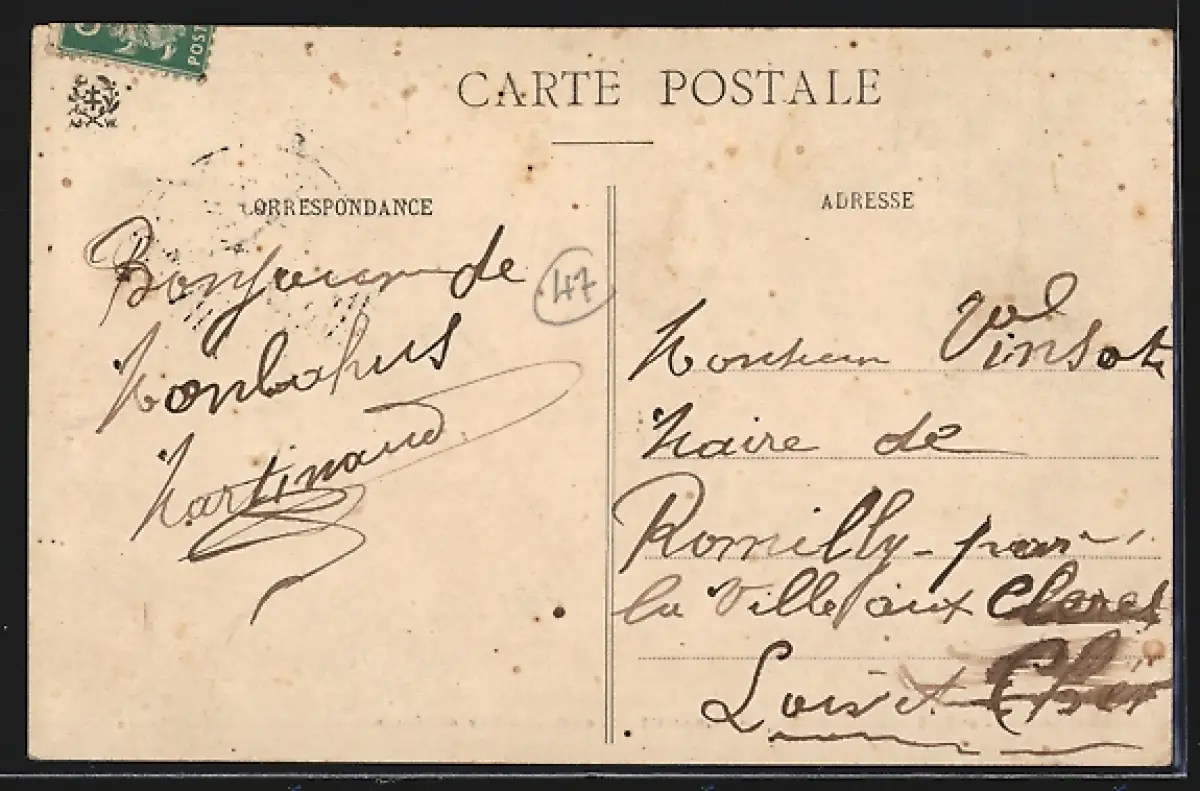 POST
CARTE POSTALE
CORRESPONDANCE
ADRESSE
Bonjour de
Monbahus
Martinaud
47
Monsieur
Maire de
Romilly - par
la Ville aux Clercs
Loir et Cher